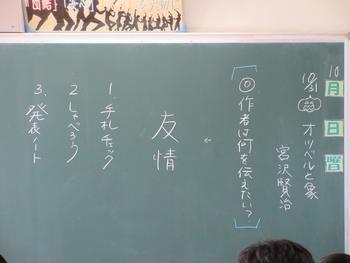 10
月
日
曜
10/31 オツベルと象
宮沢賢治
◎作者は何を伝えたい?
友情
1. 手札チェック
2. しゃべろう
3. 発表ノート